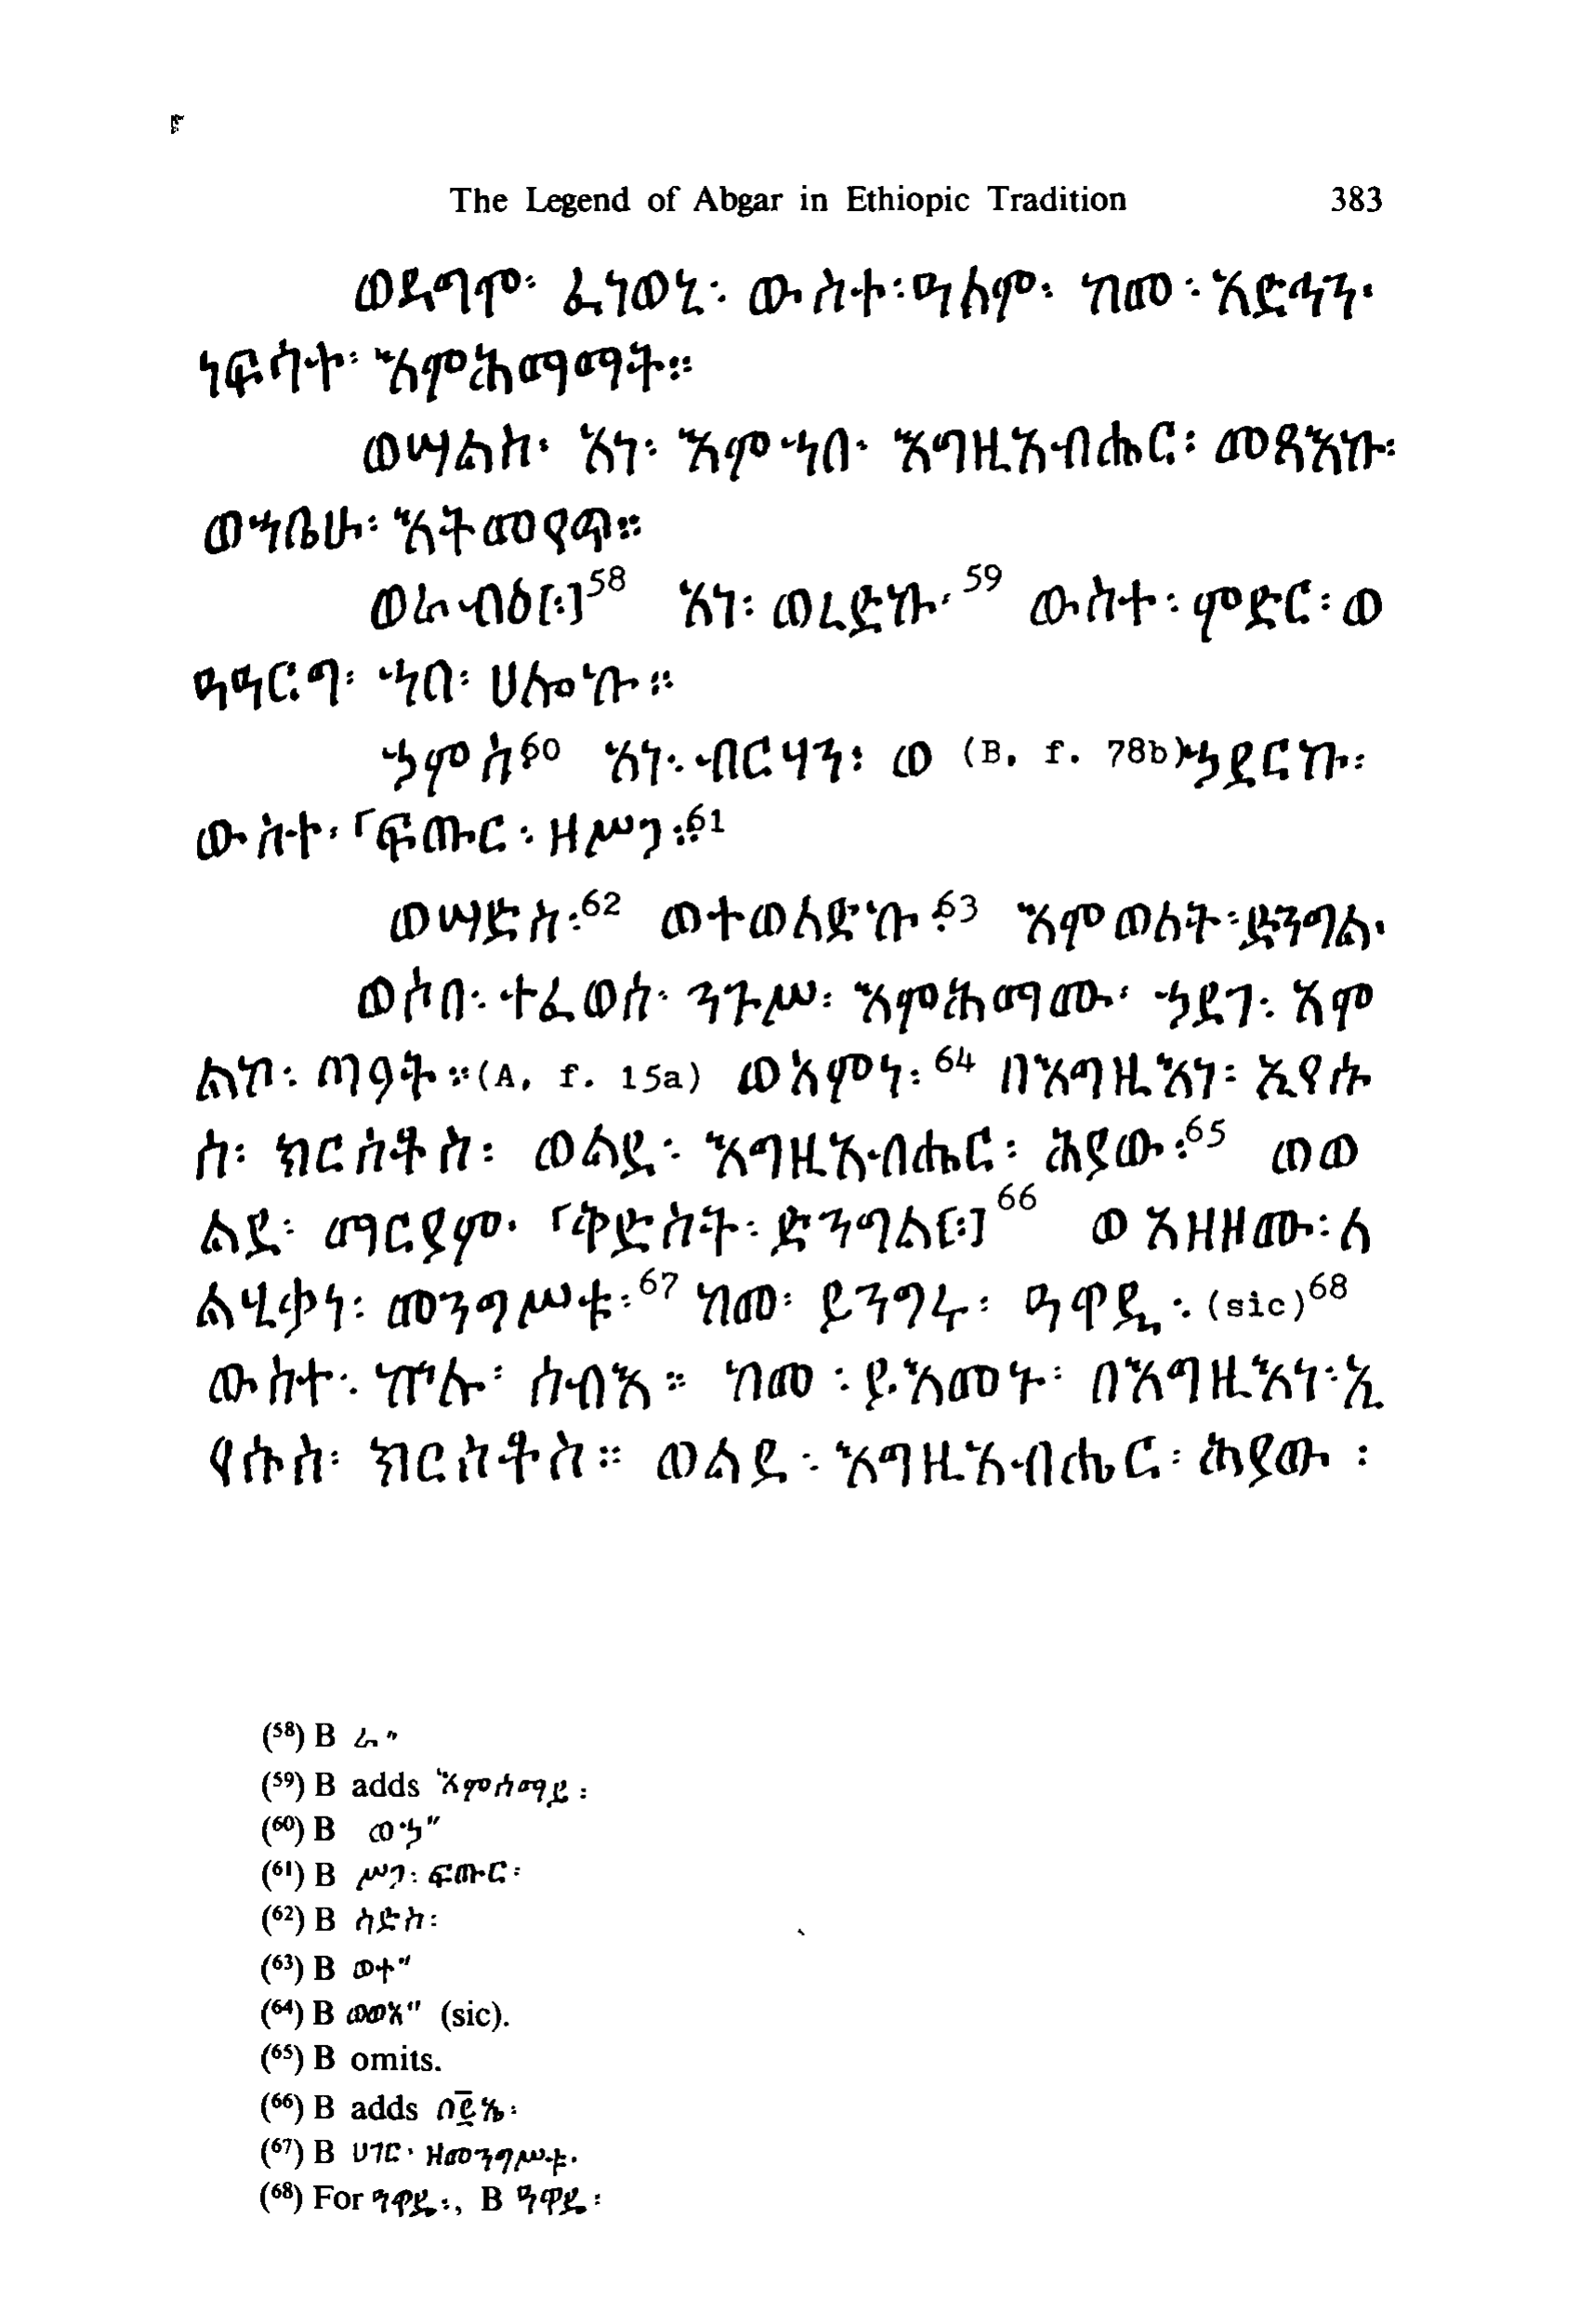 The Legend of Abgar in Ethiopic Tradition 383
ወዳግሞ፡ ፈነወኒ፡ ውስተ፡ ዓለም፡ ከመ፡ አድኅን፡
ነፍሳተ፡ እምሕማማት።
ወሣልስ፡ አነ፡ እምኀበ፡ እግዚአብሔር፡ መጻእኩ፡
ወኀቤሁ፡ እትመየጥ።
ወራብዕ[፡]58 አነ፡ ወረድኩ፡59 ውስተ፡ ምድር፡ ወ
ዓዓርግ፡ ኀበ፡ ሀሎኩ።
ኃምስ፡60 አነ፡ ብርሃን፡ ወ (B, f. 78b) ኃደርኩ፡
ውስተ፡ ⌜ፍጡር፡ ዘሥጋ።61
ወሣድስ፡62 ወተወለድኩ፡63 እምወለት፡ ድንግል፡
ወሶበ፡ ተፈወሰ፡ ንጉሥ፡ እምሕማሙ፡ ኃደገ፡ አም
ልኮ፡ ጣዖት። (A, f. 15a) ወአምነ፡64 በእግዚእነ፡ ኢየሱ
ስ፡ ክርስቶስ፡ ወልደ፡ እግዚአብሔር፡ ሕያው፡65 ወወ
ልደ፡ ማርያም፡ ⌜ቅድስት፡ ድንግል[፡]66 ወአዘዘሙ፡ ለ
ልሂቃነ፡ መንግሥቱ፡67 ከመ፡ ይንግሩ፡ ዓዋዲ፡ (sic)68
ውስተ፡ ኵሉ፡ ሰብእ። ከመ፡ ይእመኑ፡ በእግዚእነ፡ ኢ
የሱስ፡ ክርስቶስ። ወልደ፡ እግዚአብሔር፡ ሕያው፡
(58) B ራ"
(59) B adds እምሰማይ፡
(60) B ወኃ"
(61) B ሥጋ፡ ፍጡር፡
(62) B ሳድስ፡
(63) B ወተ"
(64) B ወወአ" (sic).
(65) B omits.
(66) B adds በ፪ኤ፡
(67) B ሀገር፡ ዘመንግሥቱ፡
(68) For ዓዋዴ፡, B ዓዋዴ፡